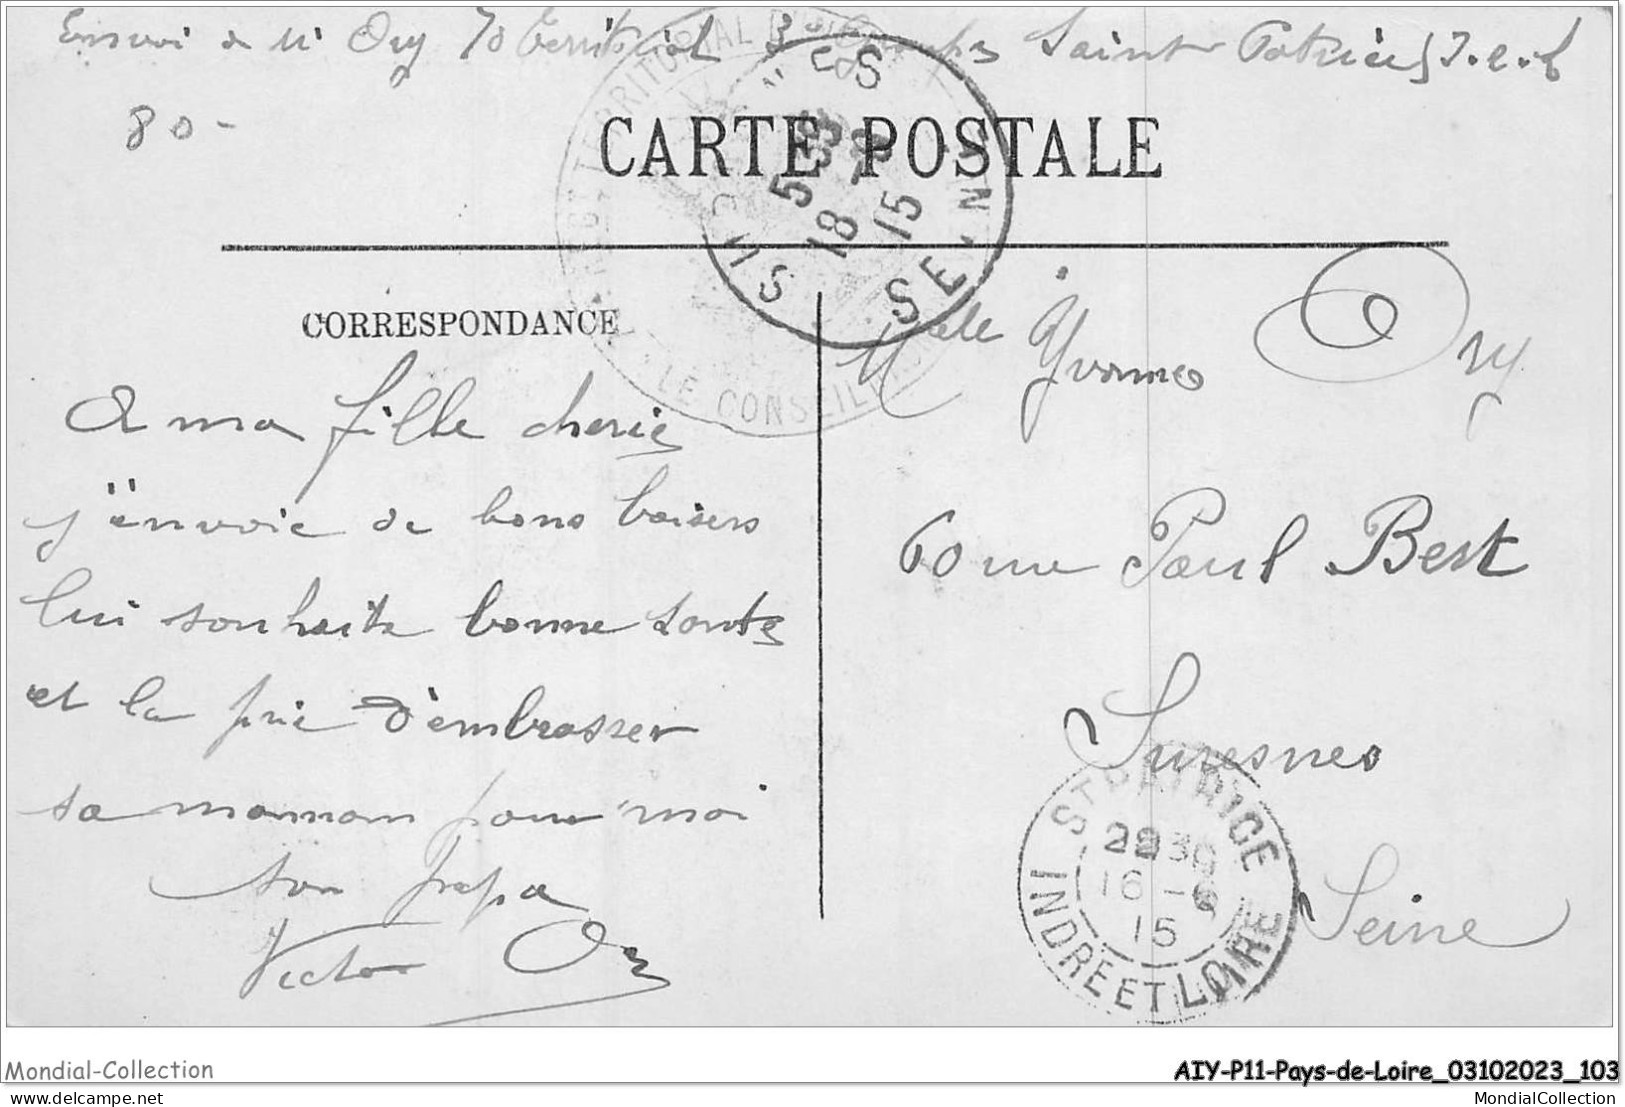 Envoi de Mr Ory 70 Territorial 3e Cie pr Saint Patrice I.e.L
80-
CARTE POSTALE
SURESNES SEINE
5 18 15
LE CONSEIL
CORRESPONDANCE
A ma fille cherie
j'envoie de bons baisers
lui souhaite bonne sante
et la prie d'embrasser
sa maman pour moi
son Papa
Victor Ory
Melle Yvonne Ory
60 rue Paul Bert
Suresnes
Seine
ST PATRICE
16 -6
15
INDRE ET LOIRE
Mondial-Collection
AIY-P11-Pays-de-Loire_03102023_103
MondialCollection